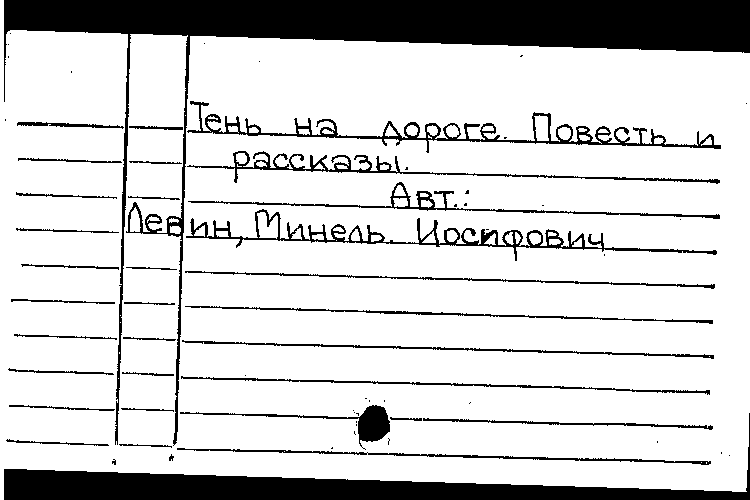 Тень на дороге. Повесть и
рассказы.
Авт.:
Левин, Минель. Иосифович